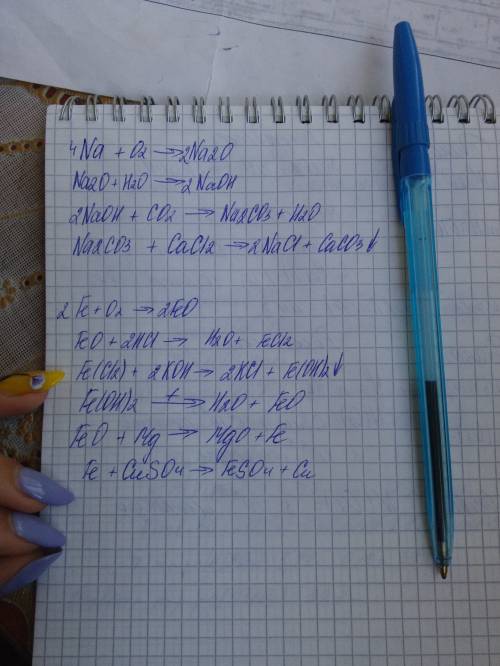 4Na + O2 → 2Na2O
Na2O + H2O → 2NaOH
2NaOH + CO2 → Na2CO3 + H2O
Na2CO3 + CaCl2 → 2NaCl + CaCO3↓
2Fe + O2 → 2FeO
FeO + 2HCl → H2O + FeCl2
Fe(Cl2) + 2KOH → 2KCl + Fe(OH)2↓
Fe(OH)2 t→ H2O + FeO
FeO + Mg → MgO + Fe
Fe + CuSO4 → FeSO4 + Cu